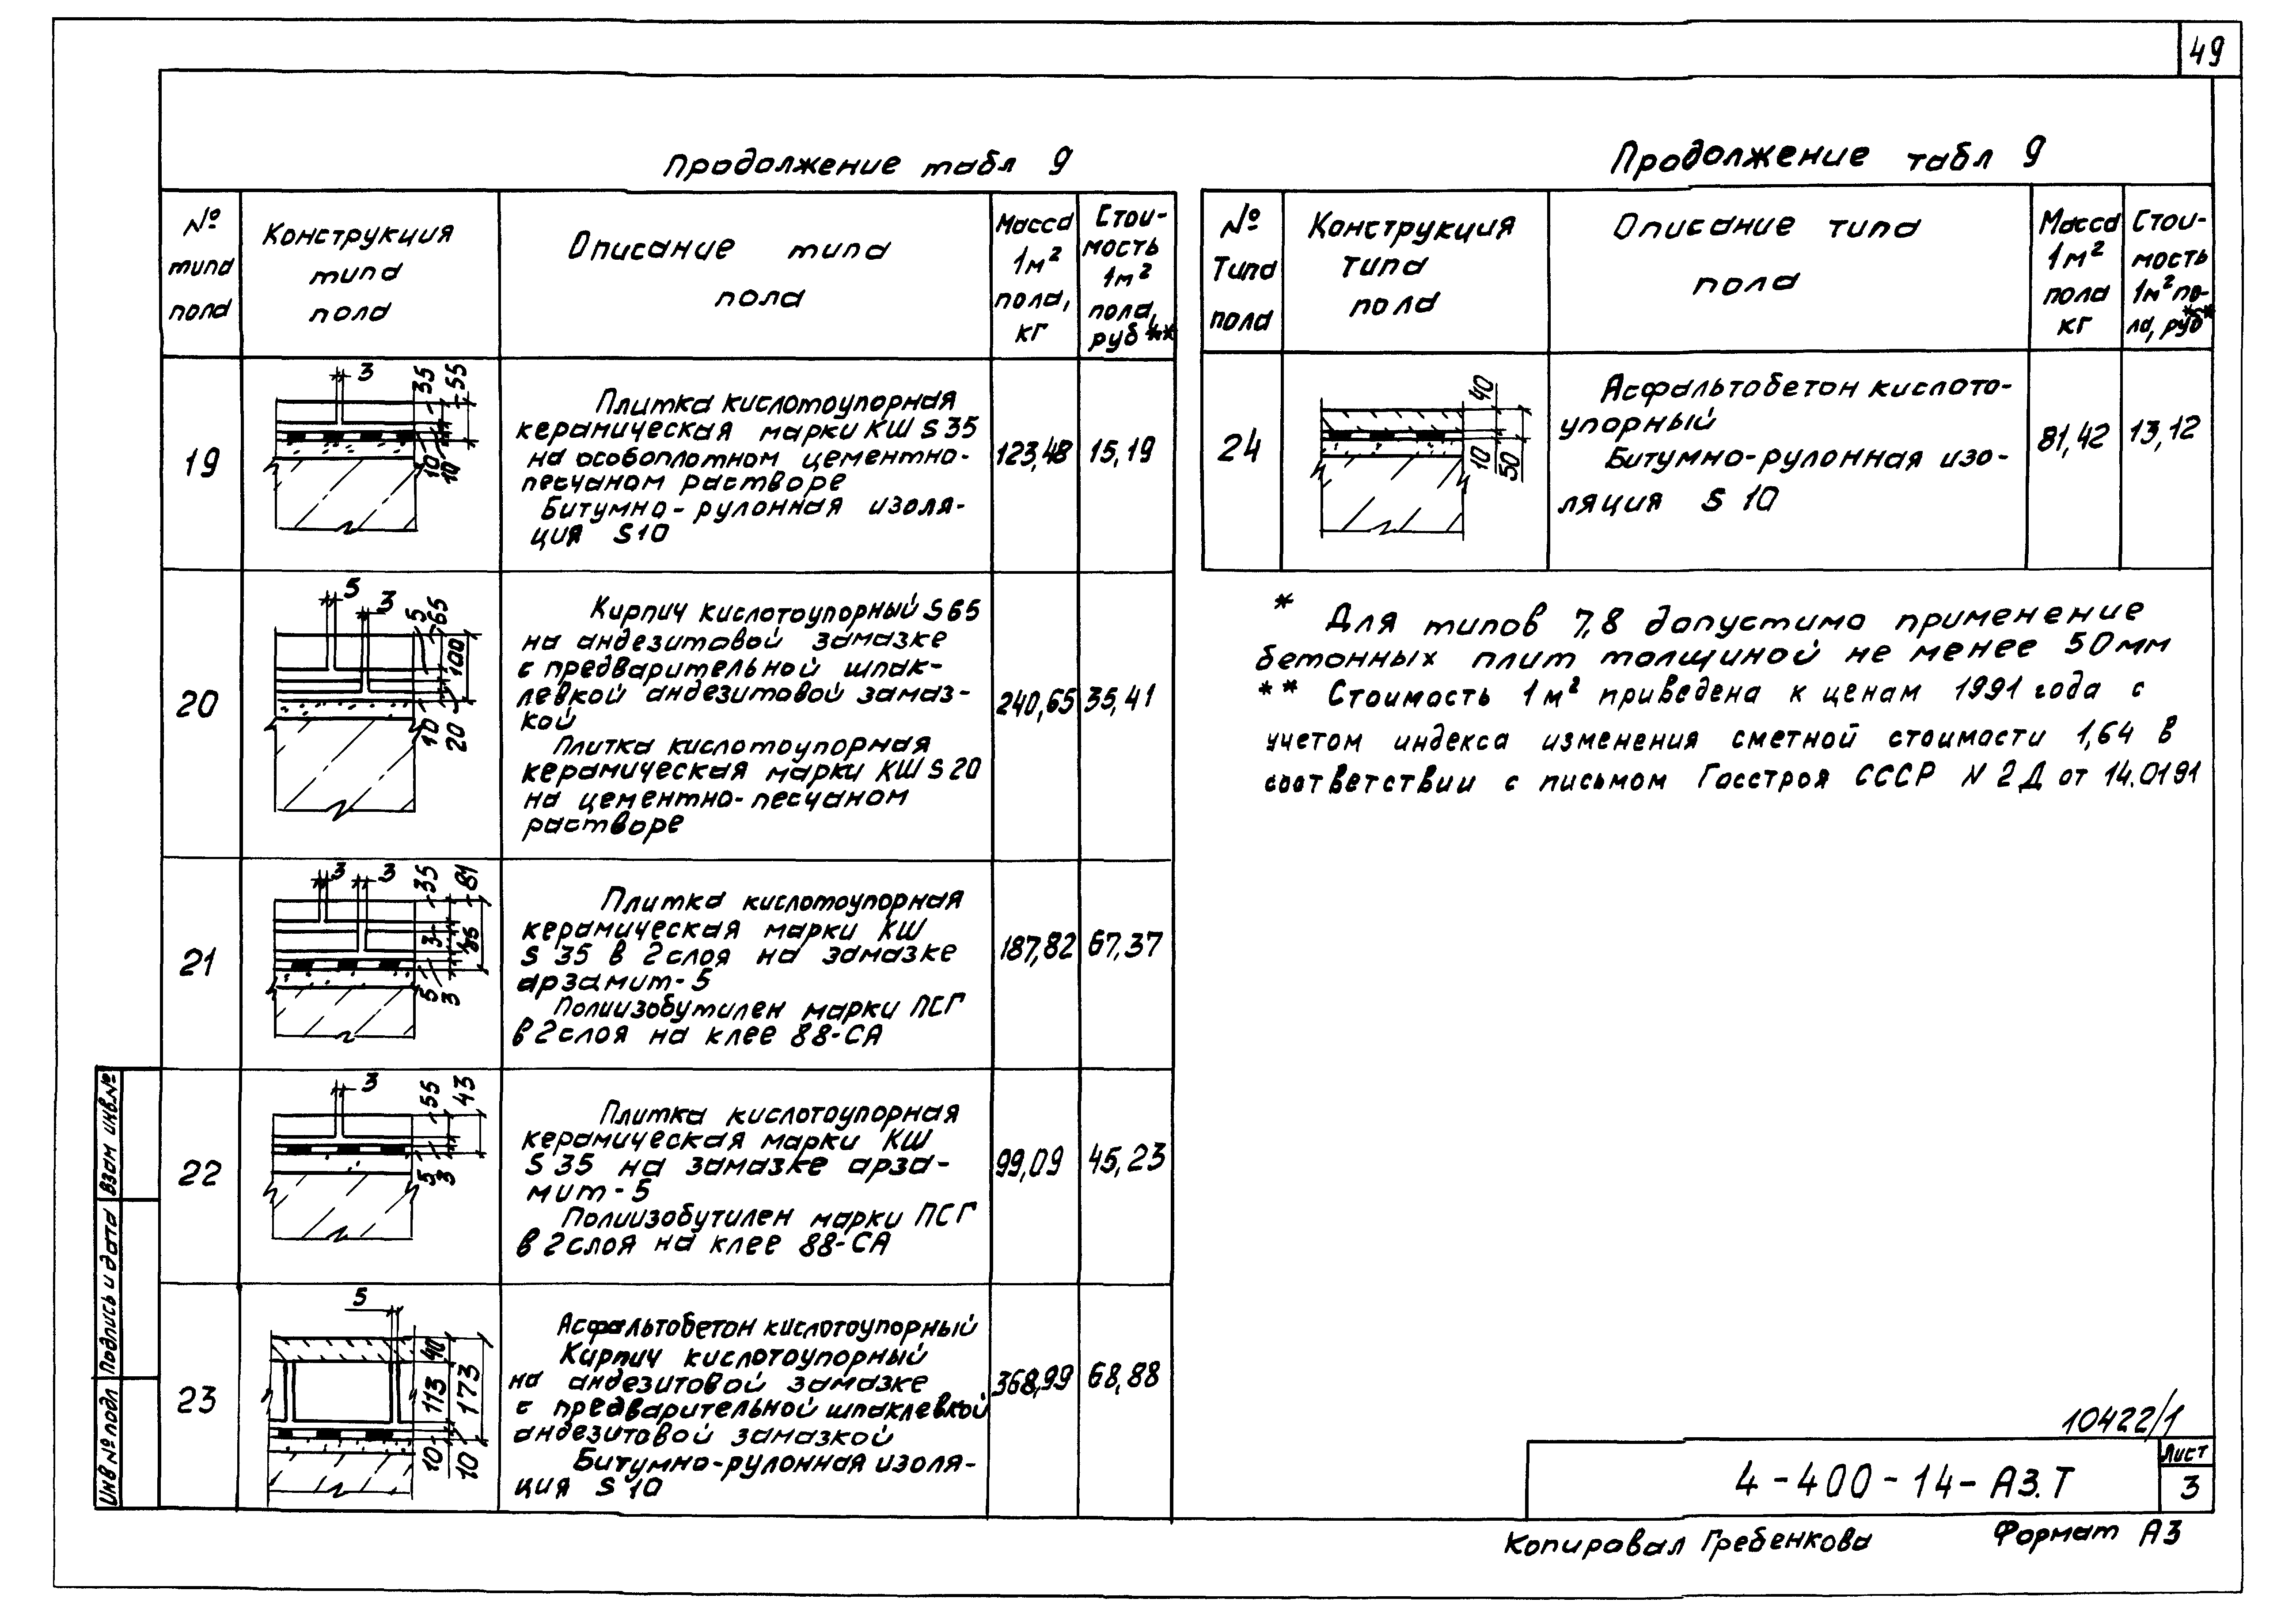 49
Продолжение табл 9
№
типа
пола
Конструкция
типа
пола
Описание типа
пола
Масса
1м²
пола,
кг
Стои-
мость
1м²
пола,
руб **
19
3
35
55
10
10
Плитка кислотоупорная
керамическая марки КШ S 35
на особоплотном цементно-
песчаном растворе
Битумно-рулонная изоля-
ция S10
123,48
15,19
20
5
3
5
65
100
10
20
Кирпич кислотоупорный S 65
на андезитовой замазке
с предварительной шпак-
левкой андезитовой замаз-
кой
Плитка кислотоупорная
керамическая марки КШ S 20
на цементно-песчаном
растворе
240,65
35,41
21
3
3
35
81
3
85
5
3
Плитка кислотоупорная
керамическая марки КШ
S 35 в 2 слоя на замазке
арзамит-5
Полиизобутилен марки ПСГ
в 2 слоя на клее 88-СА
187,82
67,37
22
3
55
43
5
3
Плитка кислотоупорная
керамическая марки КШ
S 35 на замазке арза-
мит-5
Полиизобутилен марки ПСГ
в 2 слоя на клее 88-СА
99,09
45,23
23
5
40
113
173
10
10
Асфальтобетон кислотоупорный
Кирпич кислотоупорный
на андезитовой замазке
с предварительной шпаклевкой
андезитовой замазкой
Битумно-рулонная изоля-
ция S 10
368,99
68,88
Продолжение табл 9
№
Типа
пола
Конструкция
типа
пола
Описание типа
пола
Масса
1м²
пола
кг
Стои-
мость
1м² по-
ла, руб**
24
40
10
50
Асфальтобетон кислото-
упорный
Битумно-рулонная изо-
ляция S 10
81,42
13,12
* Для типов 7,8 допустимо применение
бетонных плит толщиной не менее 50мм
** Стоимость 1м² приведена к ценам 1991 года с
учетом индекса изменения сметной стоимости 1,64 в
соответствии с письмом Госстроя СССР N 2Д от 14.0191
Взам инв.№
Подпись и дата
Инв № подл
10422/1
4-400-14-А3.Т
Лист
3
Копировал Гребенкова
Формат А3